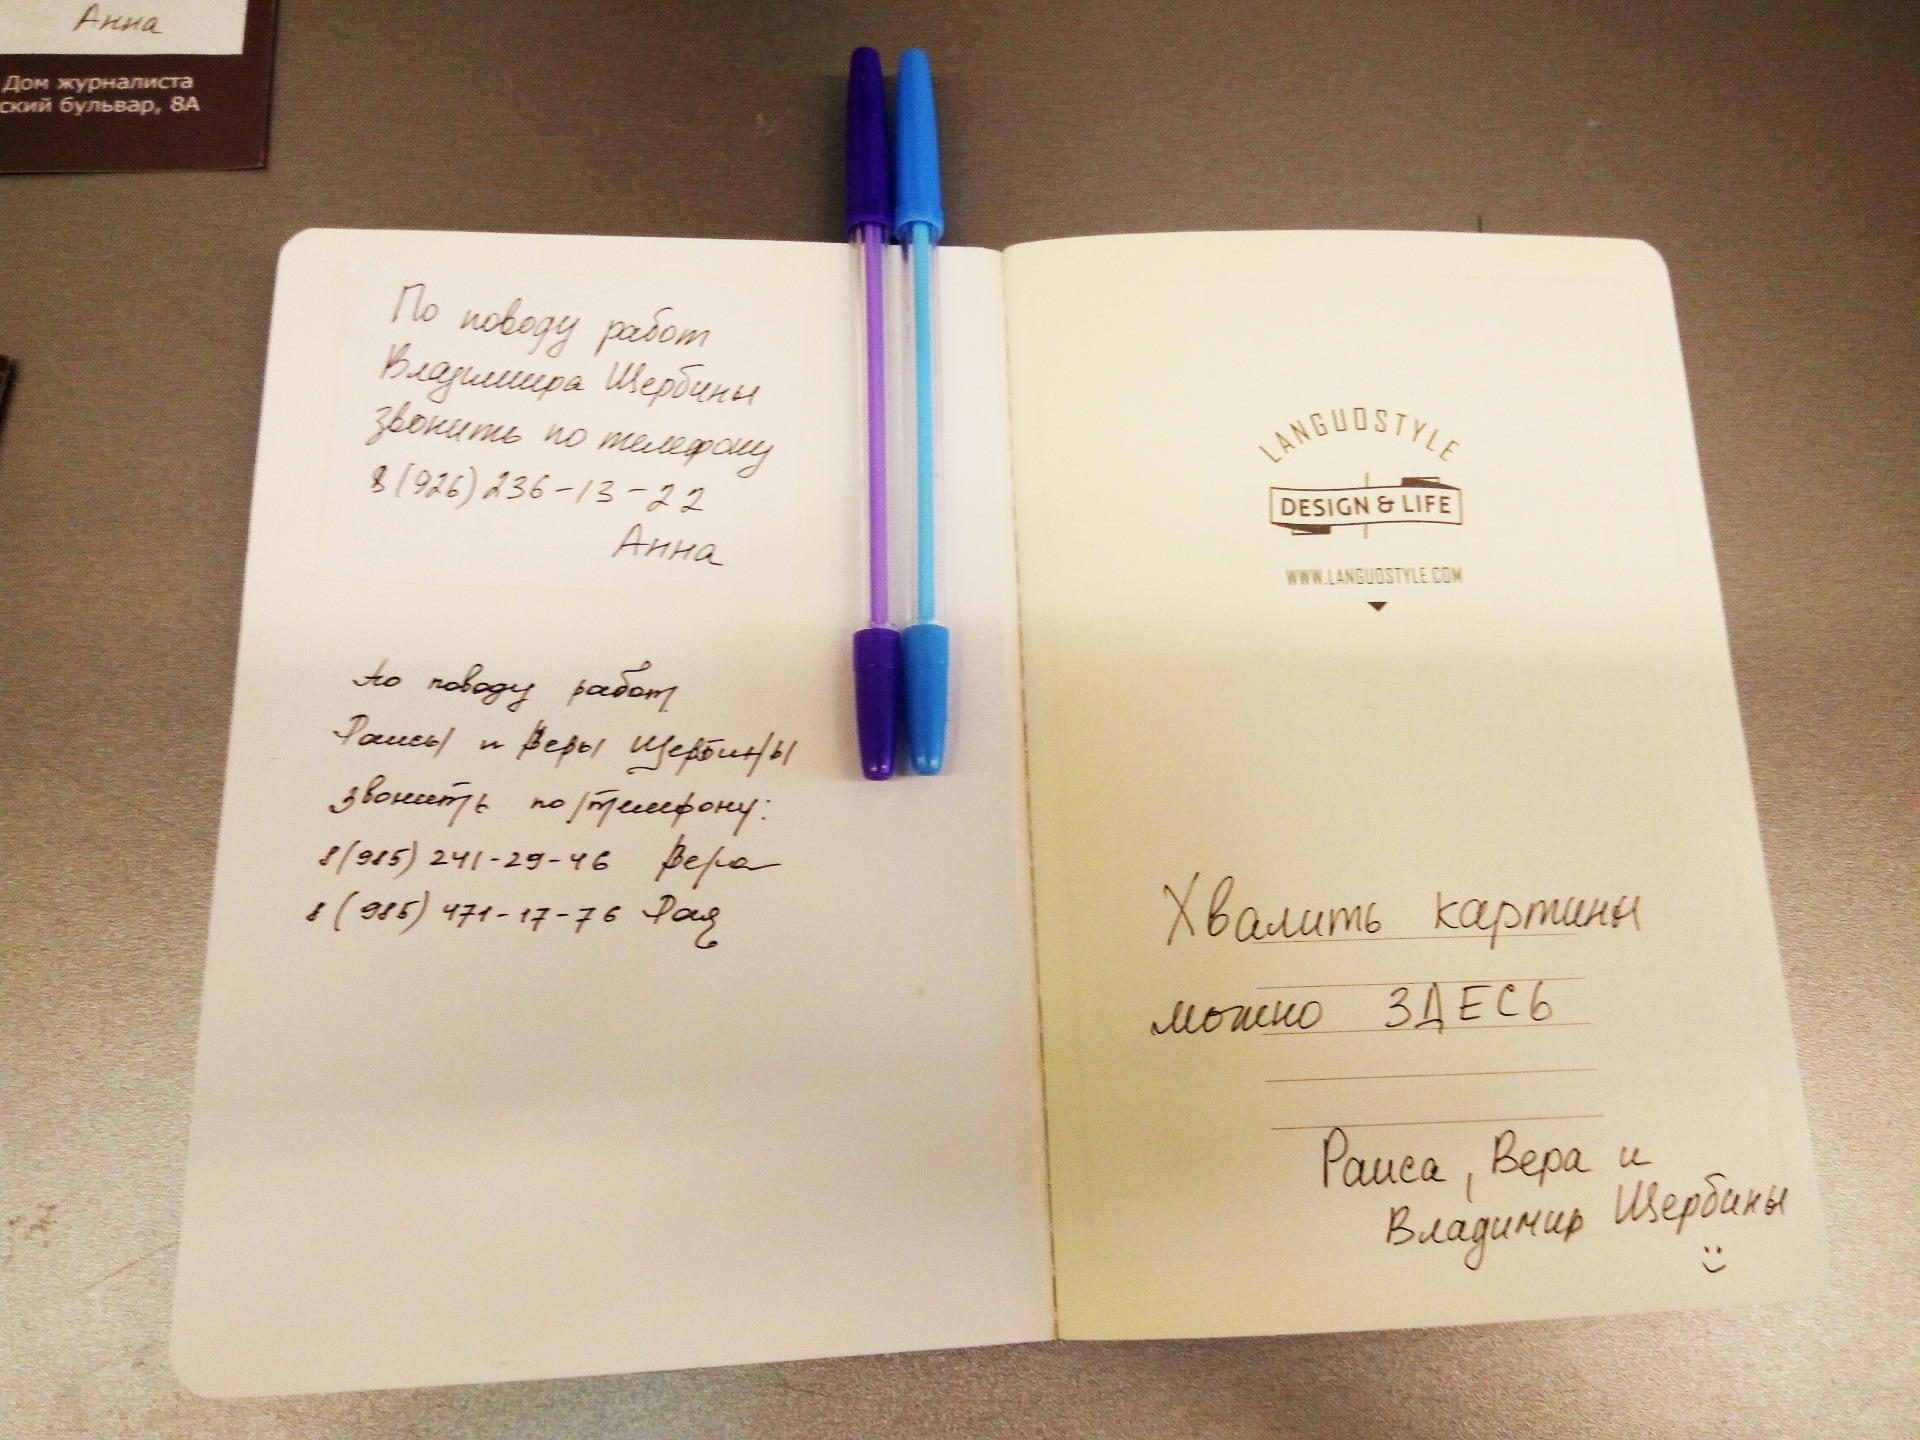 Анна
Дом журналиста
ский бульвар, 8А
По поводу работ
Владимира Щербины
звонить по телефону
8(926)236-13-22
Анна
По поводу работ
Раисы и Веры Щербины
звонить по телефону:
8(985) 241-29-46 Вера
8(985) 471-17-76 Рая
LANGUOSTYLE
DESIGN & LIFE
WWW.LANGUOSTYLE.COM
Хвалить картины
можно ЗДЕСЬ
Раиса, Вера и
Владимир Щербины
:)